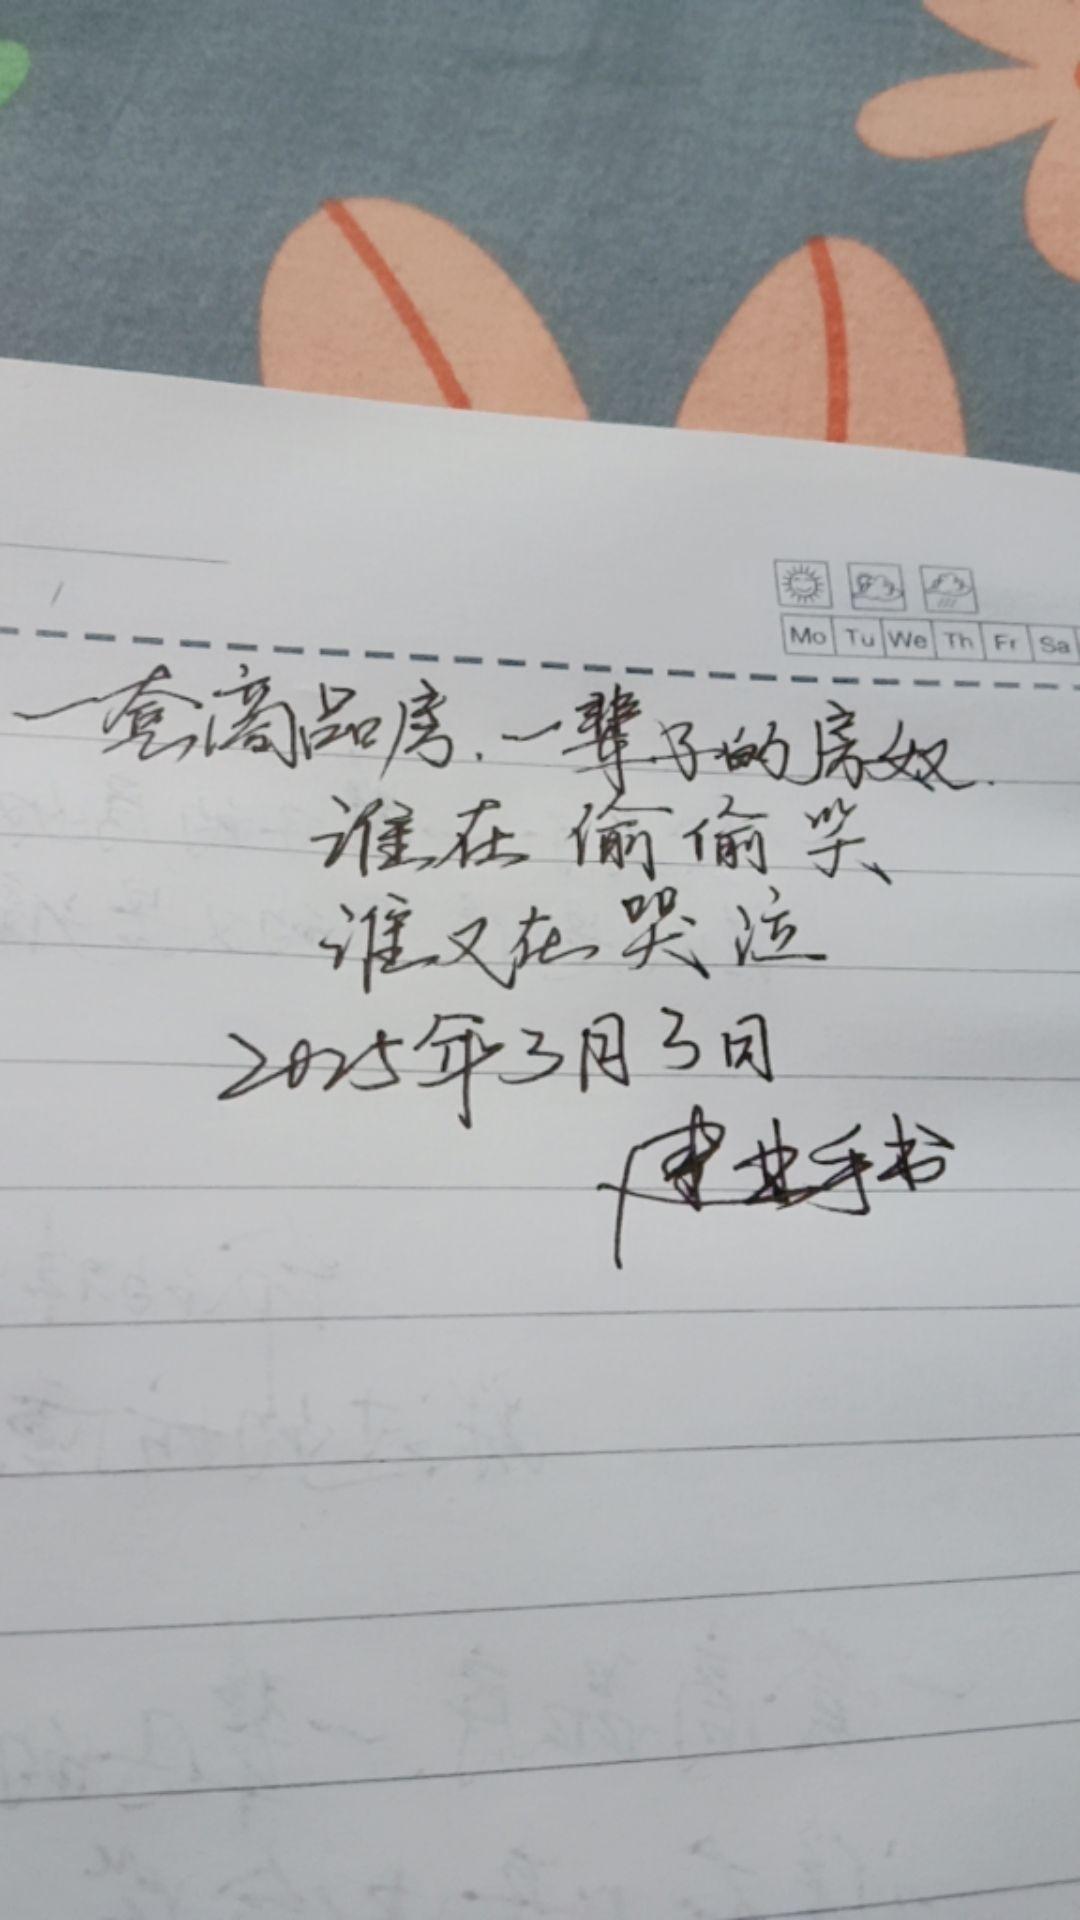 Mo Tu We Th Fr Sa
一套商品房.一辈子的房奴.
谁在偷偷笑
谁又在哭泣
2025年3月3日
建业手书